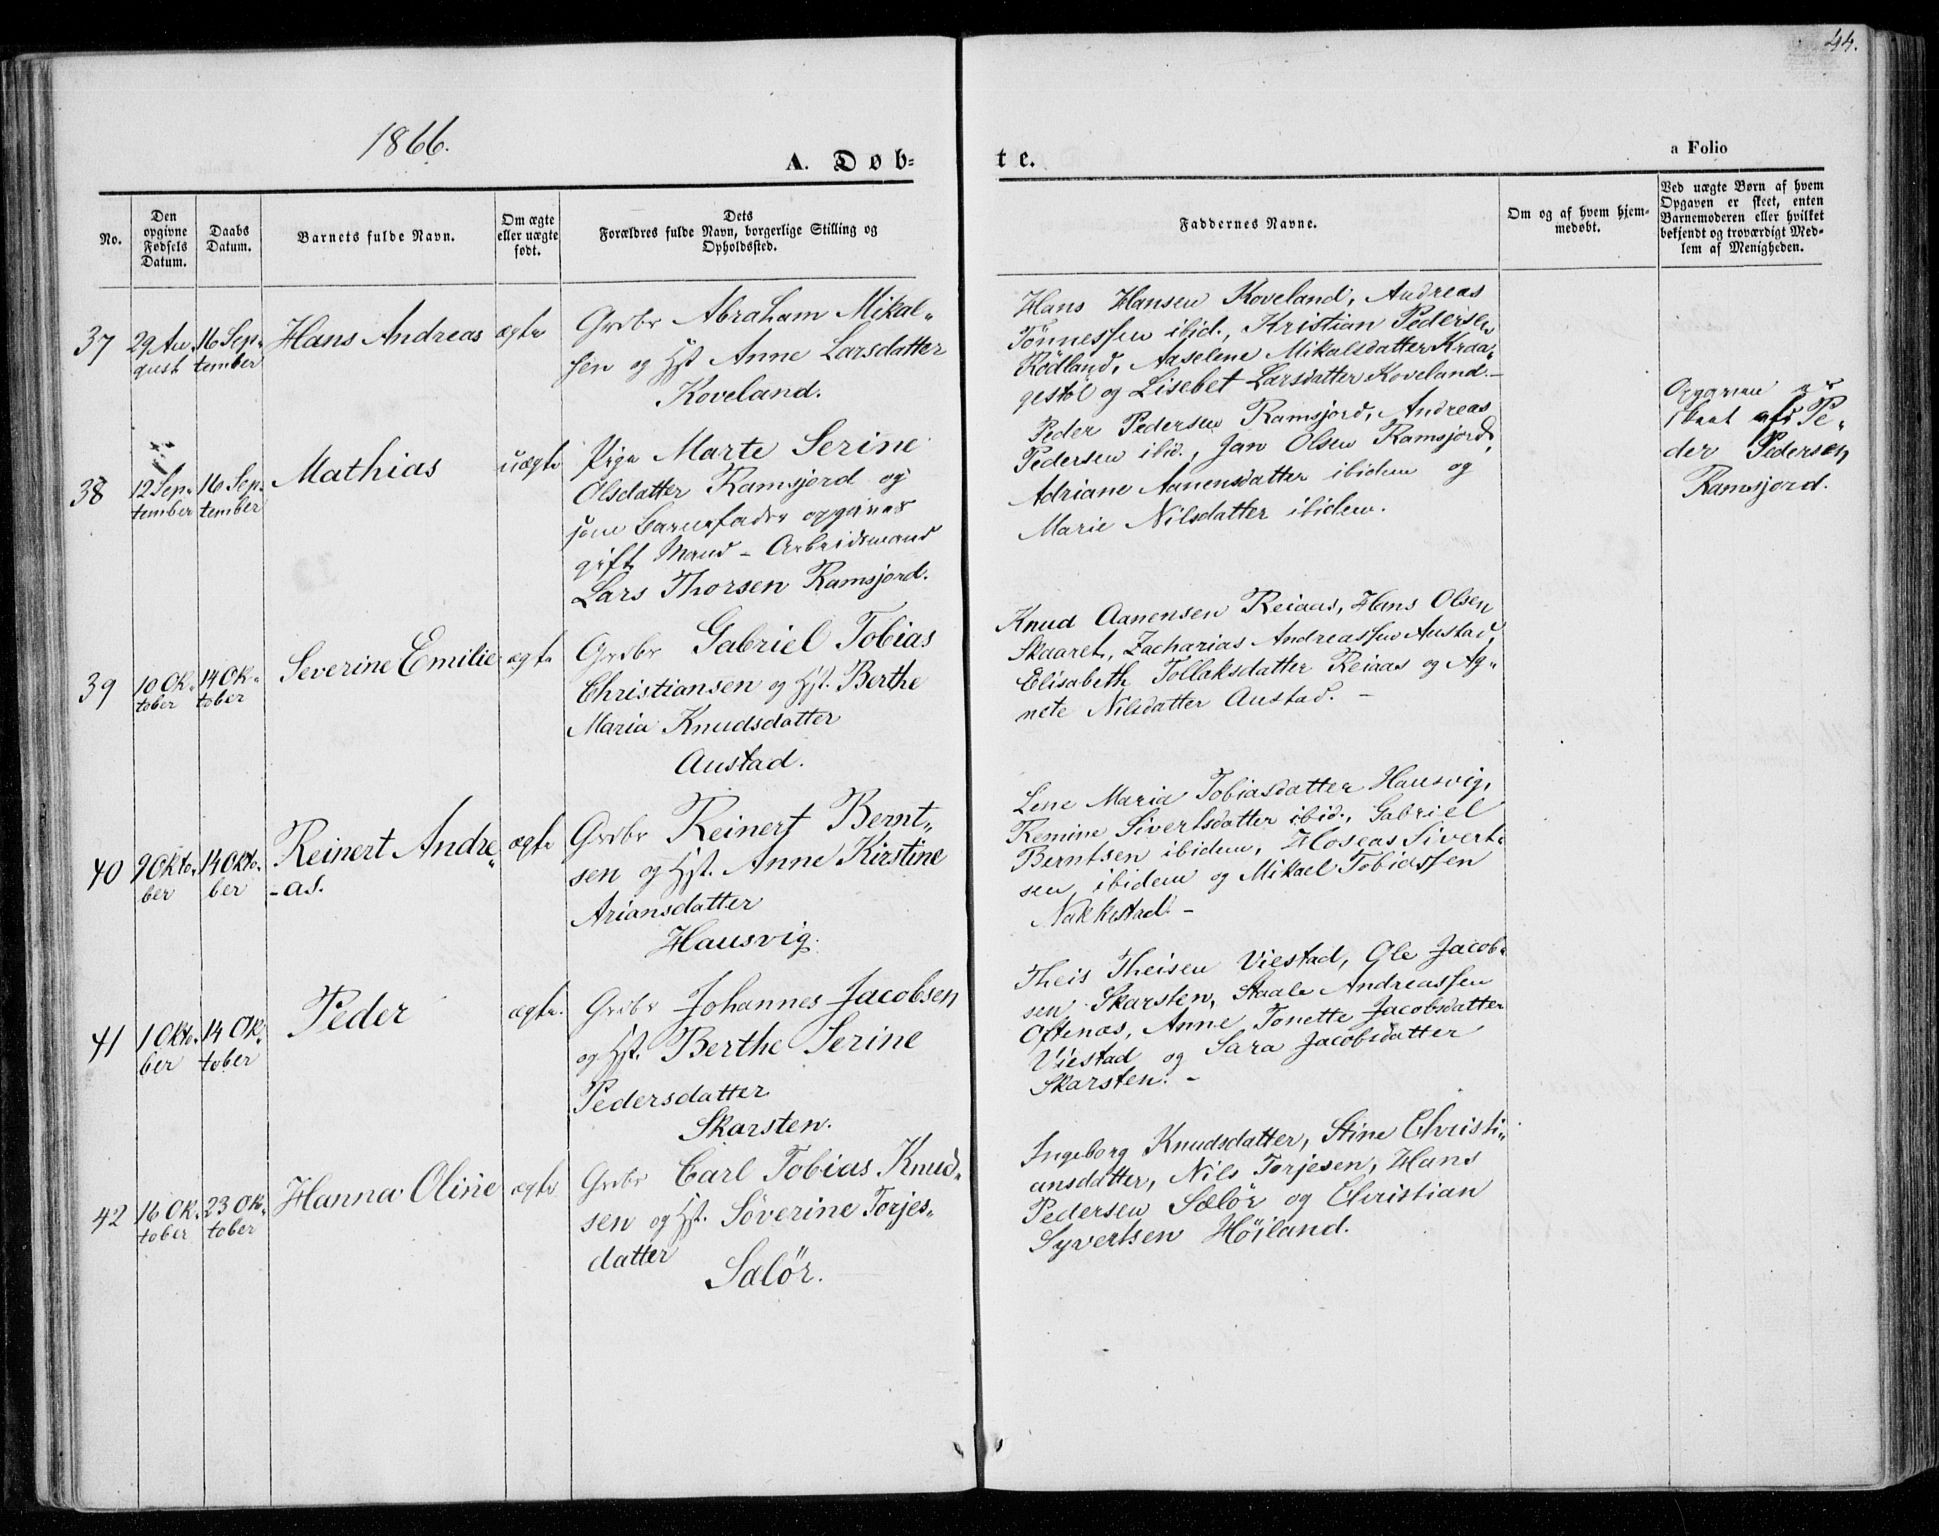 44.
1866.
A. Døb-
te.
a Folio
No.
Den
opgivne
Fødsels
Datum.
Daabs
Datum.
Barnets fulde Navn.
Om ægte
eller uægte
født.
Dets
Forældres fulde Navn, borgerlige Stilling og
Opholdssted.
Faddernes Navne.
Om og af hvem hjem-
medøbt.
Ved uægte Børn af hvem
Opgaven er skeet, enten
Barnemoderen eller hvilket
bekjendt og troværdigt Med-
lem af Menigheden.
37
29 Au-
gust
16 Sep-
tember
Hans Andreas
ægte
Grdbr Abraham Mikal-
sen og Hst Anne Larsdatter
Koveland.
Hans Hansen Koveland, Andreas
Tönnessen ibid., Kristian Pedersen
Rödland, Aaselene Mikalsdatter Kraa-
gestöl og Lisebet Larsdatter Koveland. -
38
12 Sep-
tember
16 Sep-
tember
Mathias
uægte
Pige Marte Serine
Olsdatter Ramsjord og
som Barnefader opgives
gift Mand - Arbeidsmand
Lars Thorsen Ramsjord.
Peder Pedersen Ramsjord, Andreas
Pedersen ibid., Jan Olsen Ramsjord,
Adriane Aanensdatter ibidem og
Marie Nilsdatter ibidem.
Opgaven er
skeet af Pe-
der Pedersen
Ramsjord.
39
10 Ok-
tober
14 Ok-
tober
Severine Emilie
ægte
Grdbr Gabriel Tobias
Christiansen og Hst. Berthe
Maria Knudsdatter
Austad.
Knud Aanensen Reiaas, Hans Olsen
Skaaret, Zacharias Andreassen Austad,
Elisabeth Tollaksdatter Reiaas og Ag-
nete Nilsdatter Austad. -
40
9 Okto-
ber
14 Okto-
ber
Reinert Andre-
-as.
ægte
Grdbr Reinert Bernt-
sen og Hst. Anne Kirstine
Ariansdatter
Hausvig.
Lene Maria Tobiasdatter Hausvig,
Remine Sivertsdatter ibid., Gabriel
Berntsen ibidem, Hoseas Sivert-
sen ibidem og Mikael Tobiassen
Nakkestad. -
41
1 Okto-
ber
14 Ok-
tober
Peder
ægte.
Grdbr Johannes Jacobsen
og Hst. Berthe Serine
Pedersdatter
Skarsten.
Theis Theisen Viestad, Ole Jacob-
sen Skarsten, Staale Andreassen
Oftenæs, Anne Tonette Jacobsdatter
Viestad og Sara Jacobsdatter
Skarsten. -
42
16 Ok-
tober
23 Ok-
tober
Hanna Oline
ægte
Grdbr Carl Tobias Knud-
sen og Hst. Söverine Torjes-
datter
Sælör.
Ingeborg Knudsdatter, Stine Christi-
ansdatter, Nils Torjesen, Hans
Pedersen Sælör og Christian
Syvertsen Höiland.